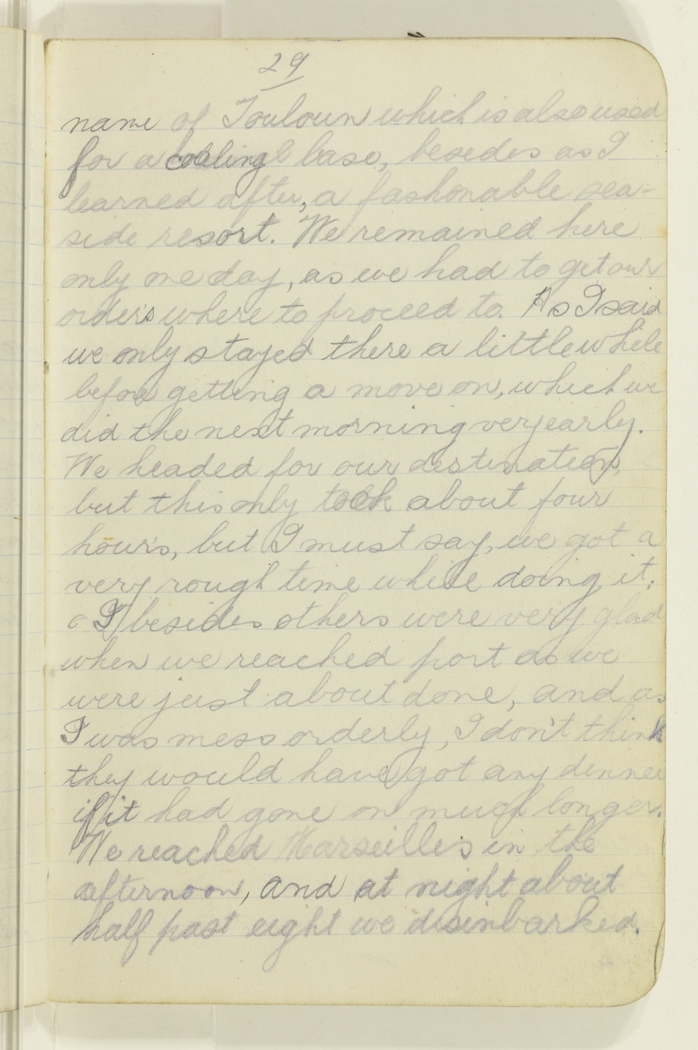 29
name of Touloun which is also used
for a coaling base, besedes as I
learned after, a fashonable sea-
side resort. We remained here
only one day, as we had to get our
orders where to proceed to. As I said
we only stayed there a little while
before getting a move on, which we
did the next morning very early.
We headed for our destination,
but this only took about four
hours, but I must say, we got a
very rough time while doing it;
I besides others were very glad
when we reached port as we
were just about done, and as
I was mess orderly, I don't think
they would have got any dinner
if it had gone on much longer.
We reached Marseilles in the
afternoon, and at night about
half past eight we disinbarked.